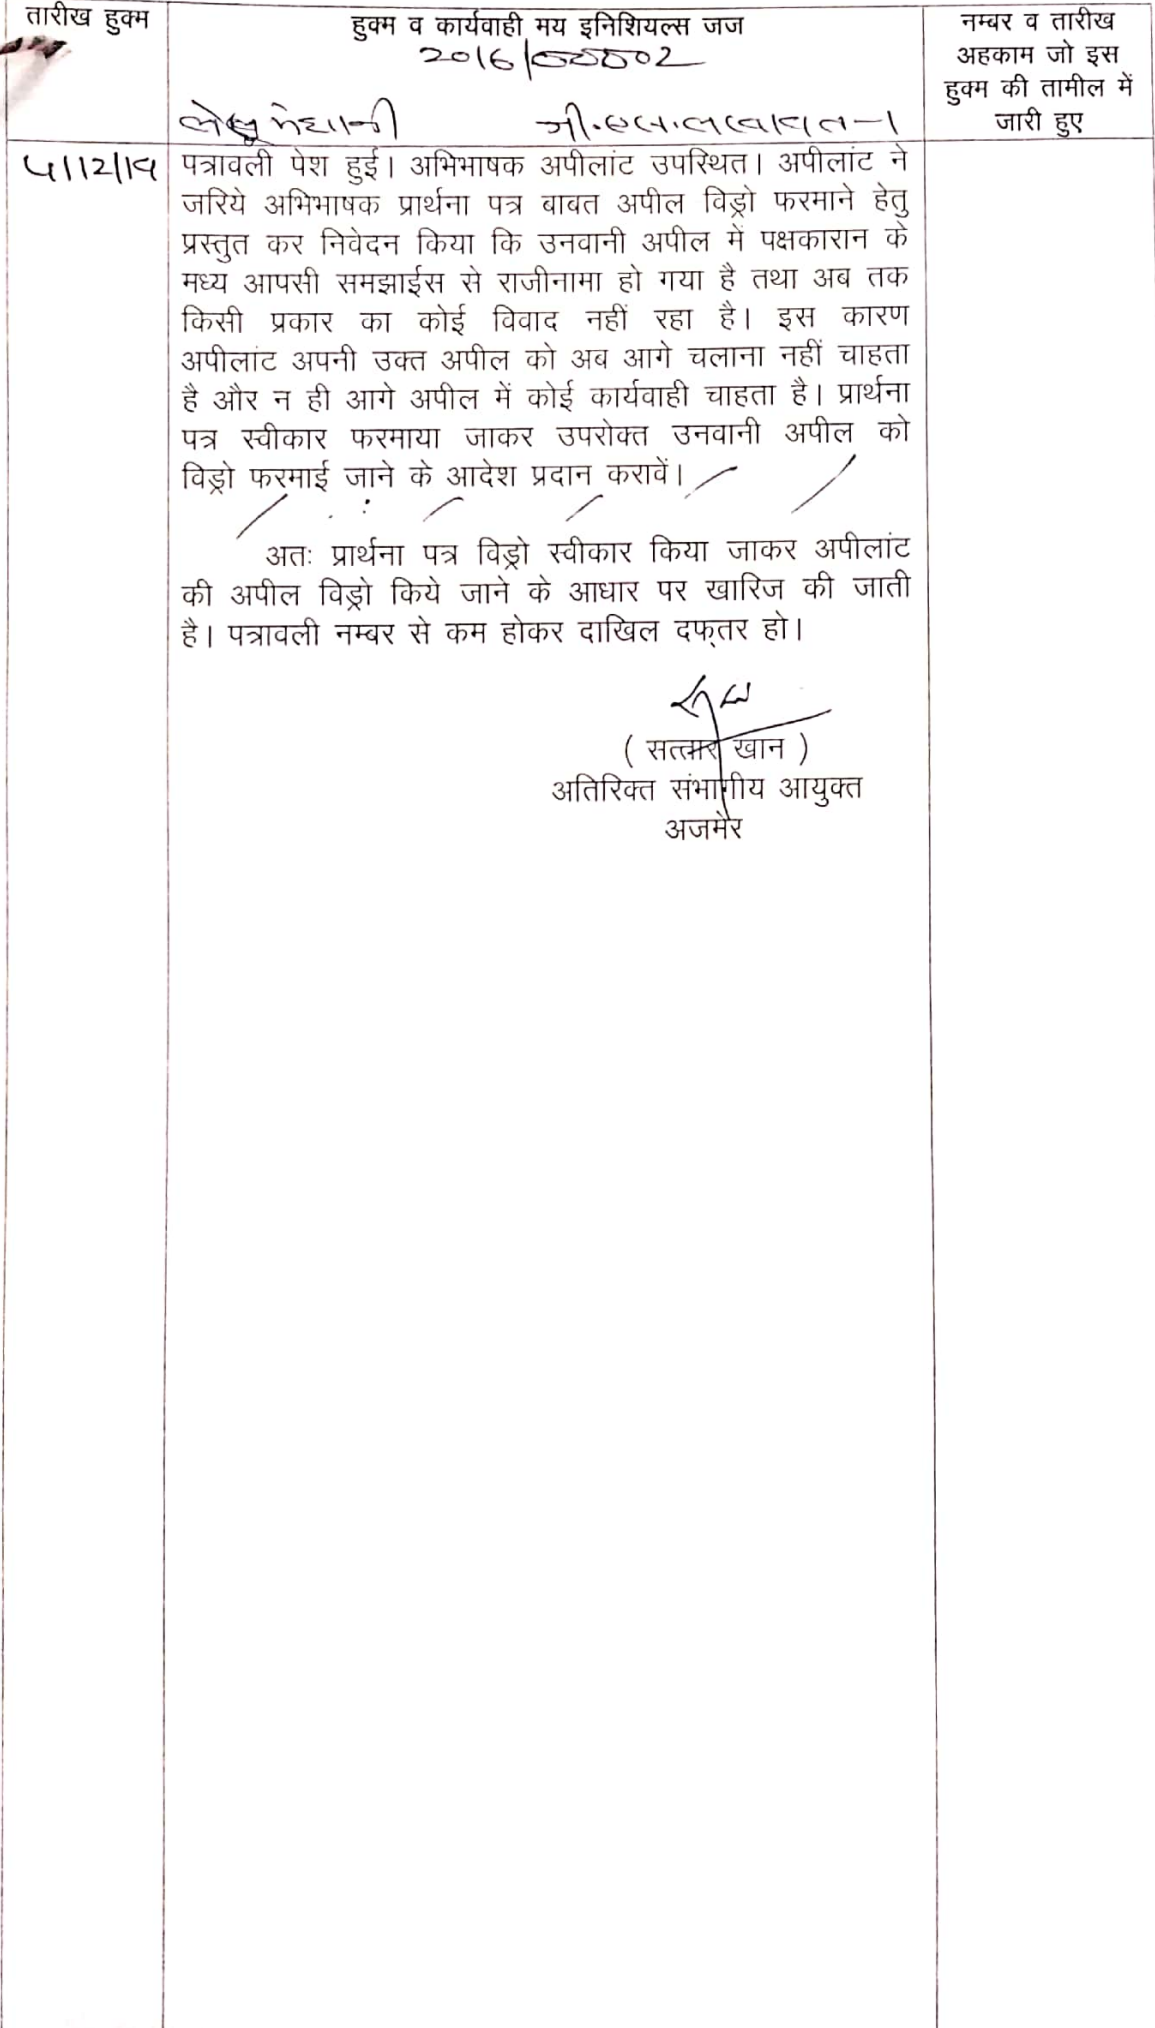 तारीख हुक्म
हुक्म व कार्यवाही मय इनिशियल्स जज
2016/00002
नम्बर व तारीख
अहकाम जो इस
हुक्म की तामील में
जारी हुए
पत्रावली पेश हुई। अभिभाषक अपीलांट उपस्थित। अपीलांट ने
जरिये अभिभाषक प्रार्थना पत्र बाबत अपील विड्रो फरमाने हेतु
प्रस्तुत कर निवेदन किया कि उनवानी अपील में पक्षकारान के
मध्य आपसी समझाईस से राजीनामा हो गया है तथा अब तक
किसी प्रकार का कोई विवाद नहीं रहा है। इस कारण
अपीलांट अपनी उक्त अपील को अब आगे चलाना नहीं चाहता
है और न ही आगे अपील में कोई कार्यवाही चाहता है। प्रार्थना
पत्र स्वीकार फरमाया जाकर उपरोक्त उनवानी अपील को
विड्रो फरमाई जाने के आदेश प्रदान करावें।
अतः प्रार्थना पत्र विड्रो स्वीकार किया जाकर अपीलांट
की अपील विड्रो किये जाने के आधार पर खारिज की जाती
है। पत्रावली नम्बर से कम होकर दाखिल दफ्तर हो।
( सत्तार खान )
अतिरिक्त संभागीय आयुक्त
अजमेर